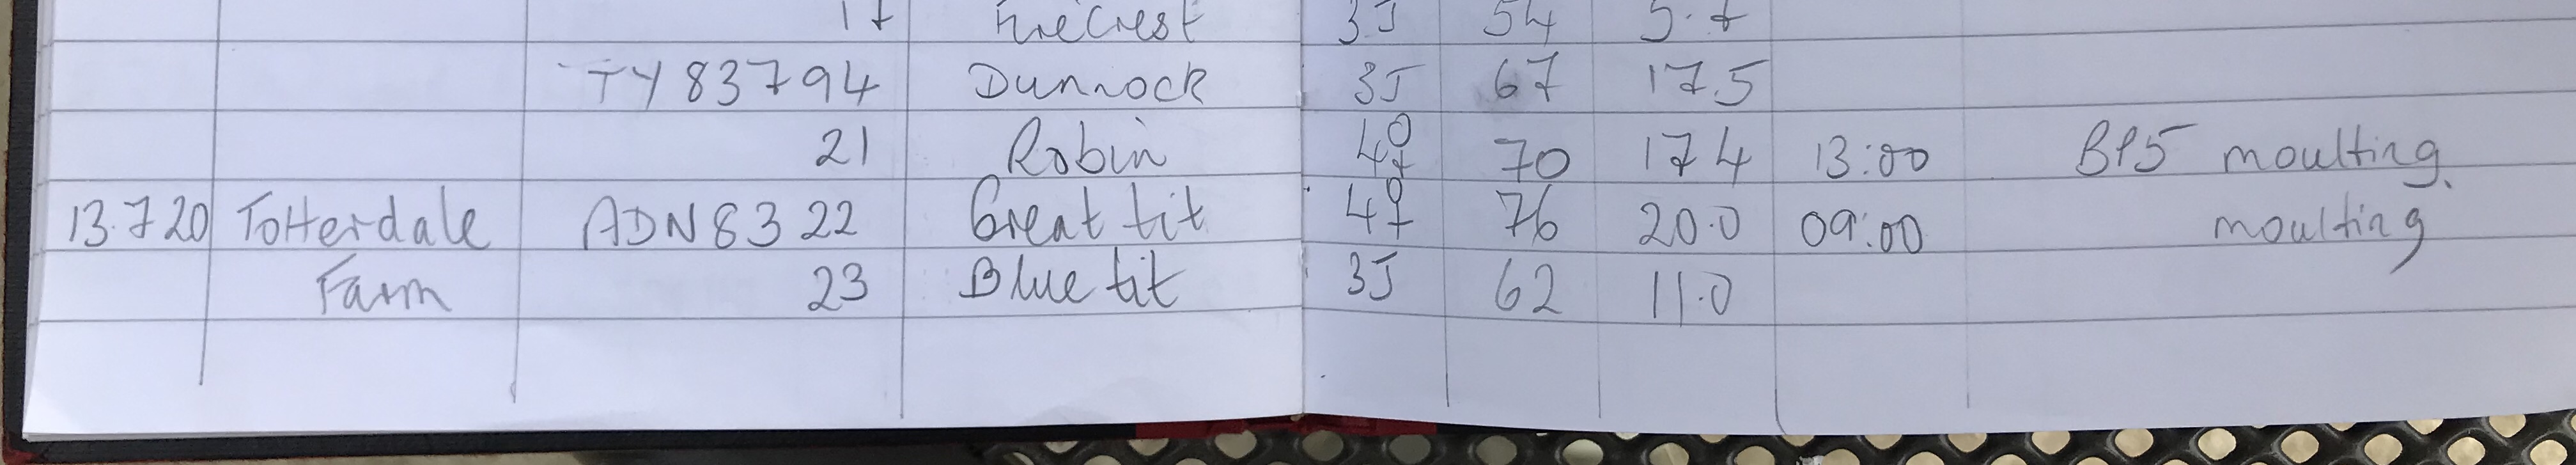 17 Firecrest 3J 54 5.7
TY83794 Dunnock 3J 67 17.5
21 Robin 4♀ 70 17.4 13:00 BP5 moulting.
13.7.20 Totterdale ADN8322 Great tit 4♀ 76 20.0 09:00 moulting
Farm 23 Blue tit 3J 62 11.0